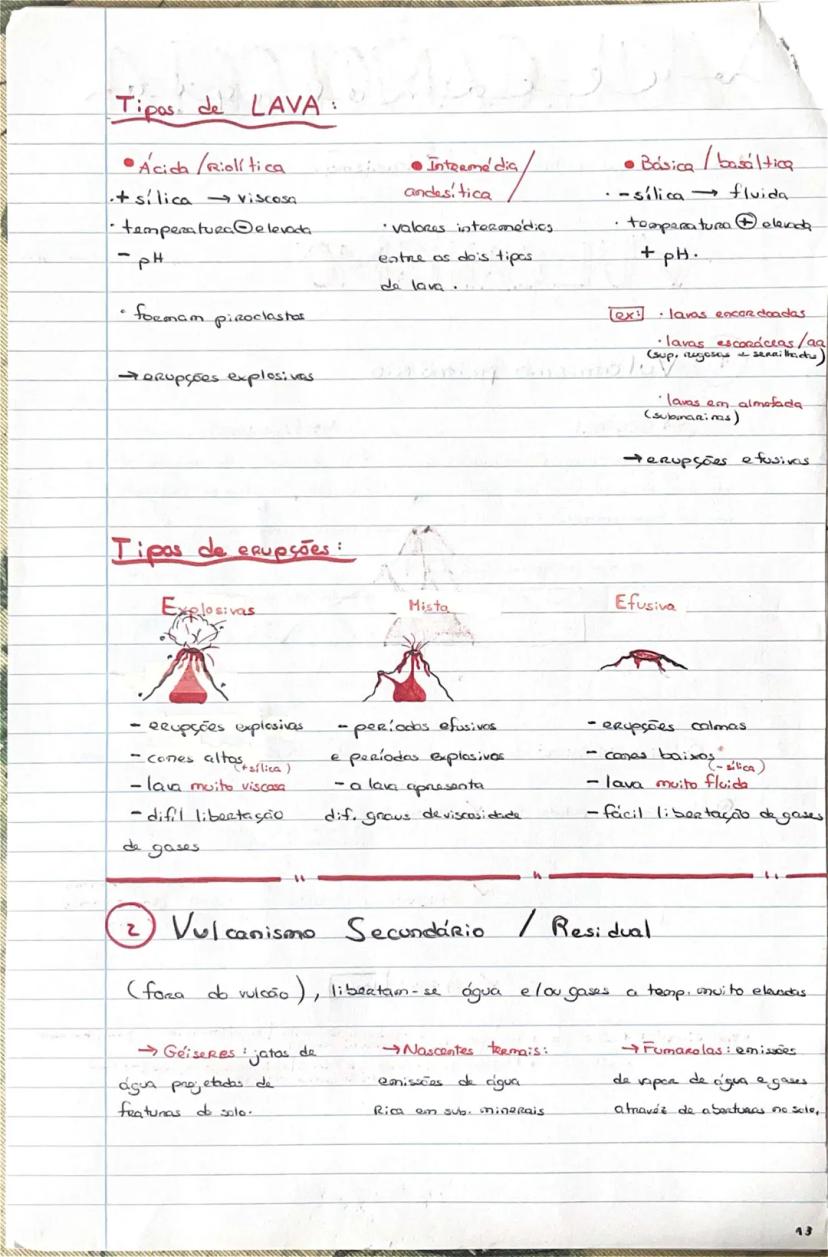 Tipos de LAVA:
• Ácida / Riolítica
+ sílica → viscosa
· temperatura ⊖ elevada
- pH
· formam piroclastos
→ erupções explosivas
• Intermédia /
andesítica /
· valores intermédios
entre os dois tipos
de lava.
• Básica / basáltica
· - sílica → fluida
· temperatura ⊕ elevada
+ pH.
ex: · lavas encordoadas
· lavas escoráceas / aa
(sup. rugosas e serrilhadas)
· lavas em almofada
(submarinas)
→ erupções efusivas
Tipos de erupções:
Explosivas
- erupções explosivas
- cones altos
(+ sílica)
- lava muito viscosa
- difíl libertação
de gases
Mista
- períodos efusivos
e períodos explosivos
- a lava apresenta
dif. graus de viscosidade
Efusiva
- erupções calmas
- cones baixos
(- sílica)
- lava muito fluida
- fácil libertação de gases
2 Vulcanismo Secundário / Residual
(fora do vulcão), libertam-se água e/ou gases a temp. muito elevadas
→ Géiseres: jatos de
água projetados de
fraturas do solo.
→ Nascentes termais:
emissões de água
Rica em sub. minerais
→ Fumarolas: emissões
de vapor de água e gases
através de aberturas no solo.
13